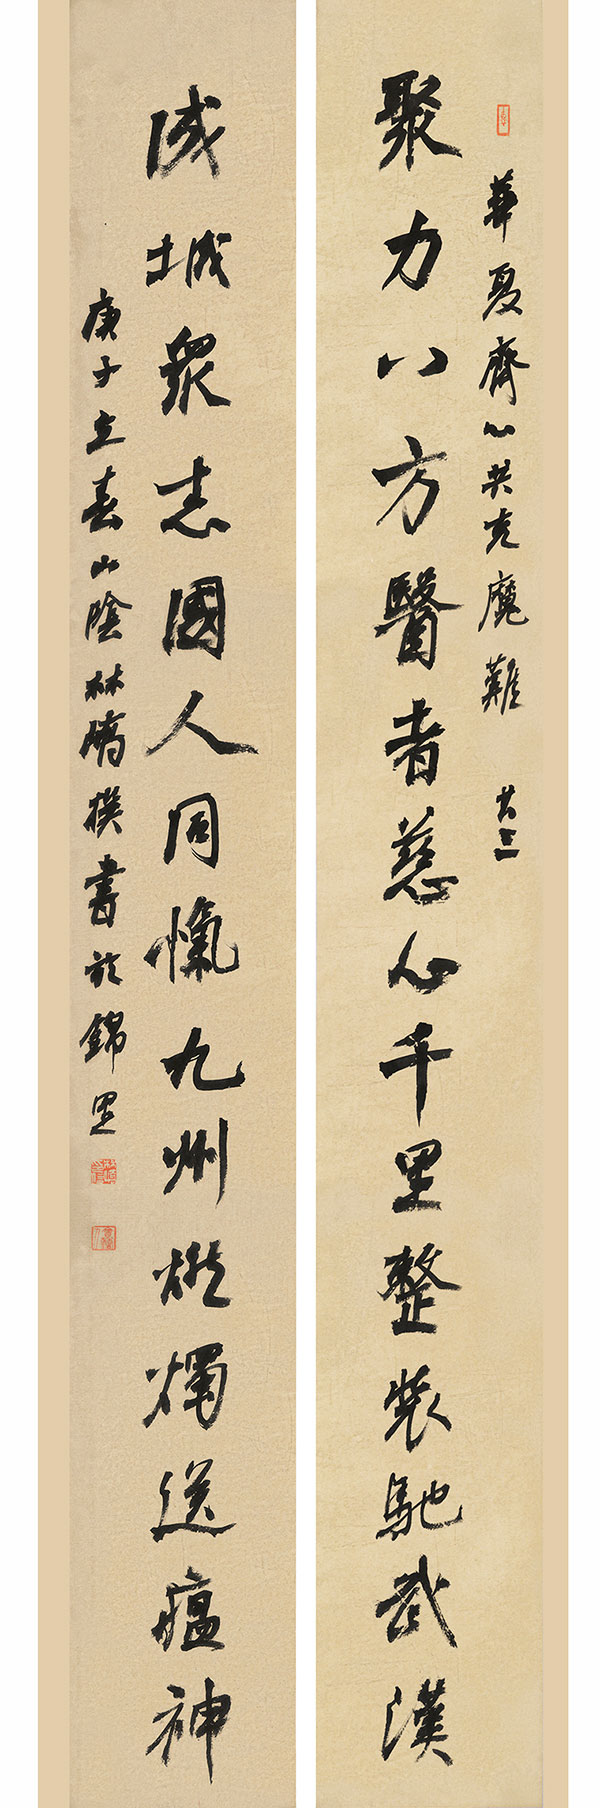 華夏齊心共克魔難 其三
聚力八方醫者慈心千里整裝馳武漢
成城眾志國人同愾九州燃燭送瘟神
庚子立春山陰林撰書於錦里